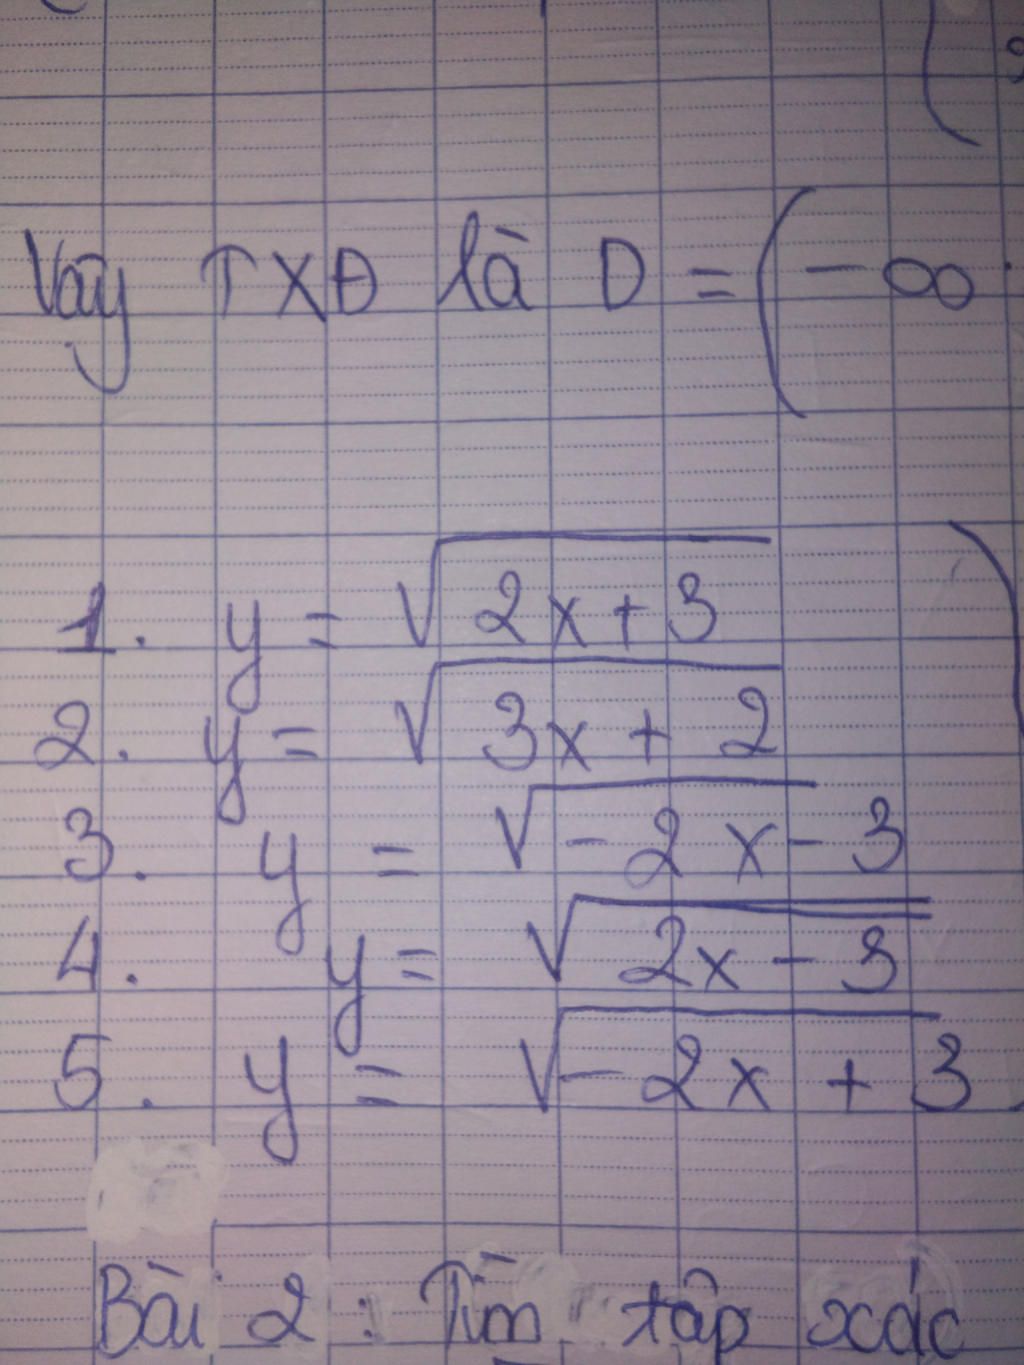 Vậy TXĐ là D = (-∞
1. y = √2x + 3
2. y = √3x + 2
3. y = √-2x - 3
4. y = √2x - 3
5. y = √-2x + 3
Bài 2 : Tìm tập xác